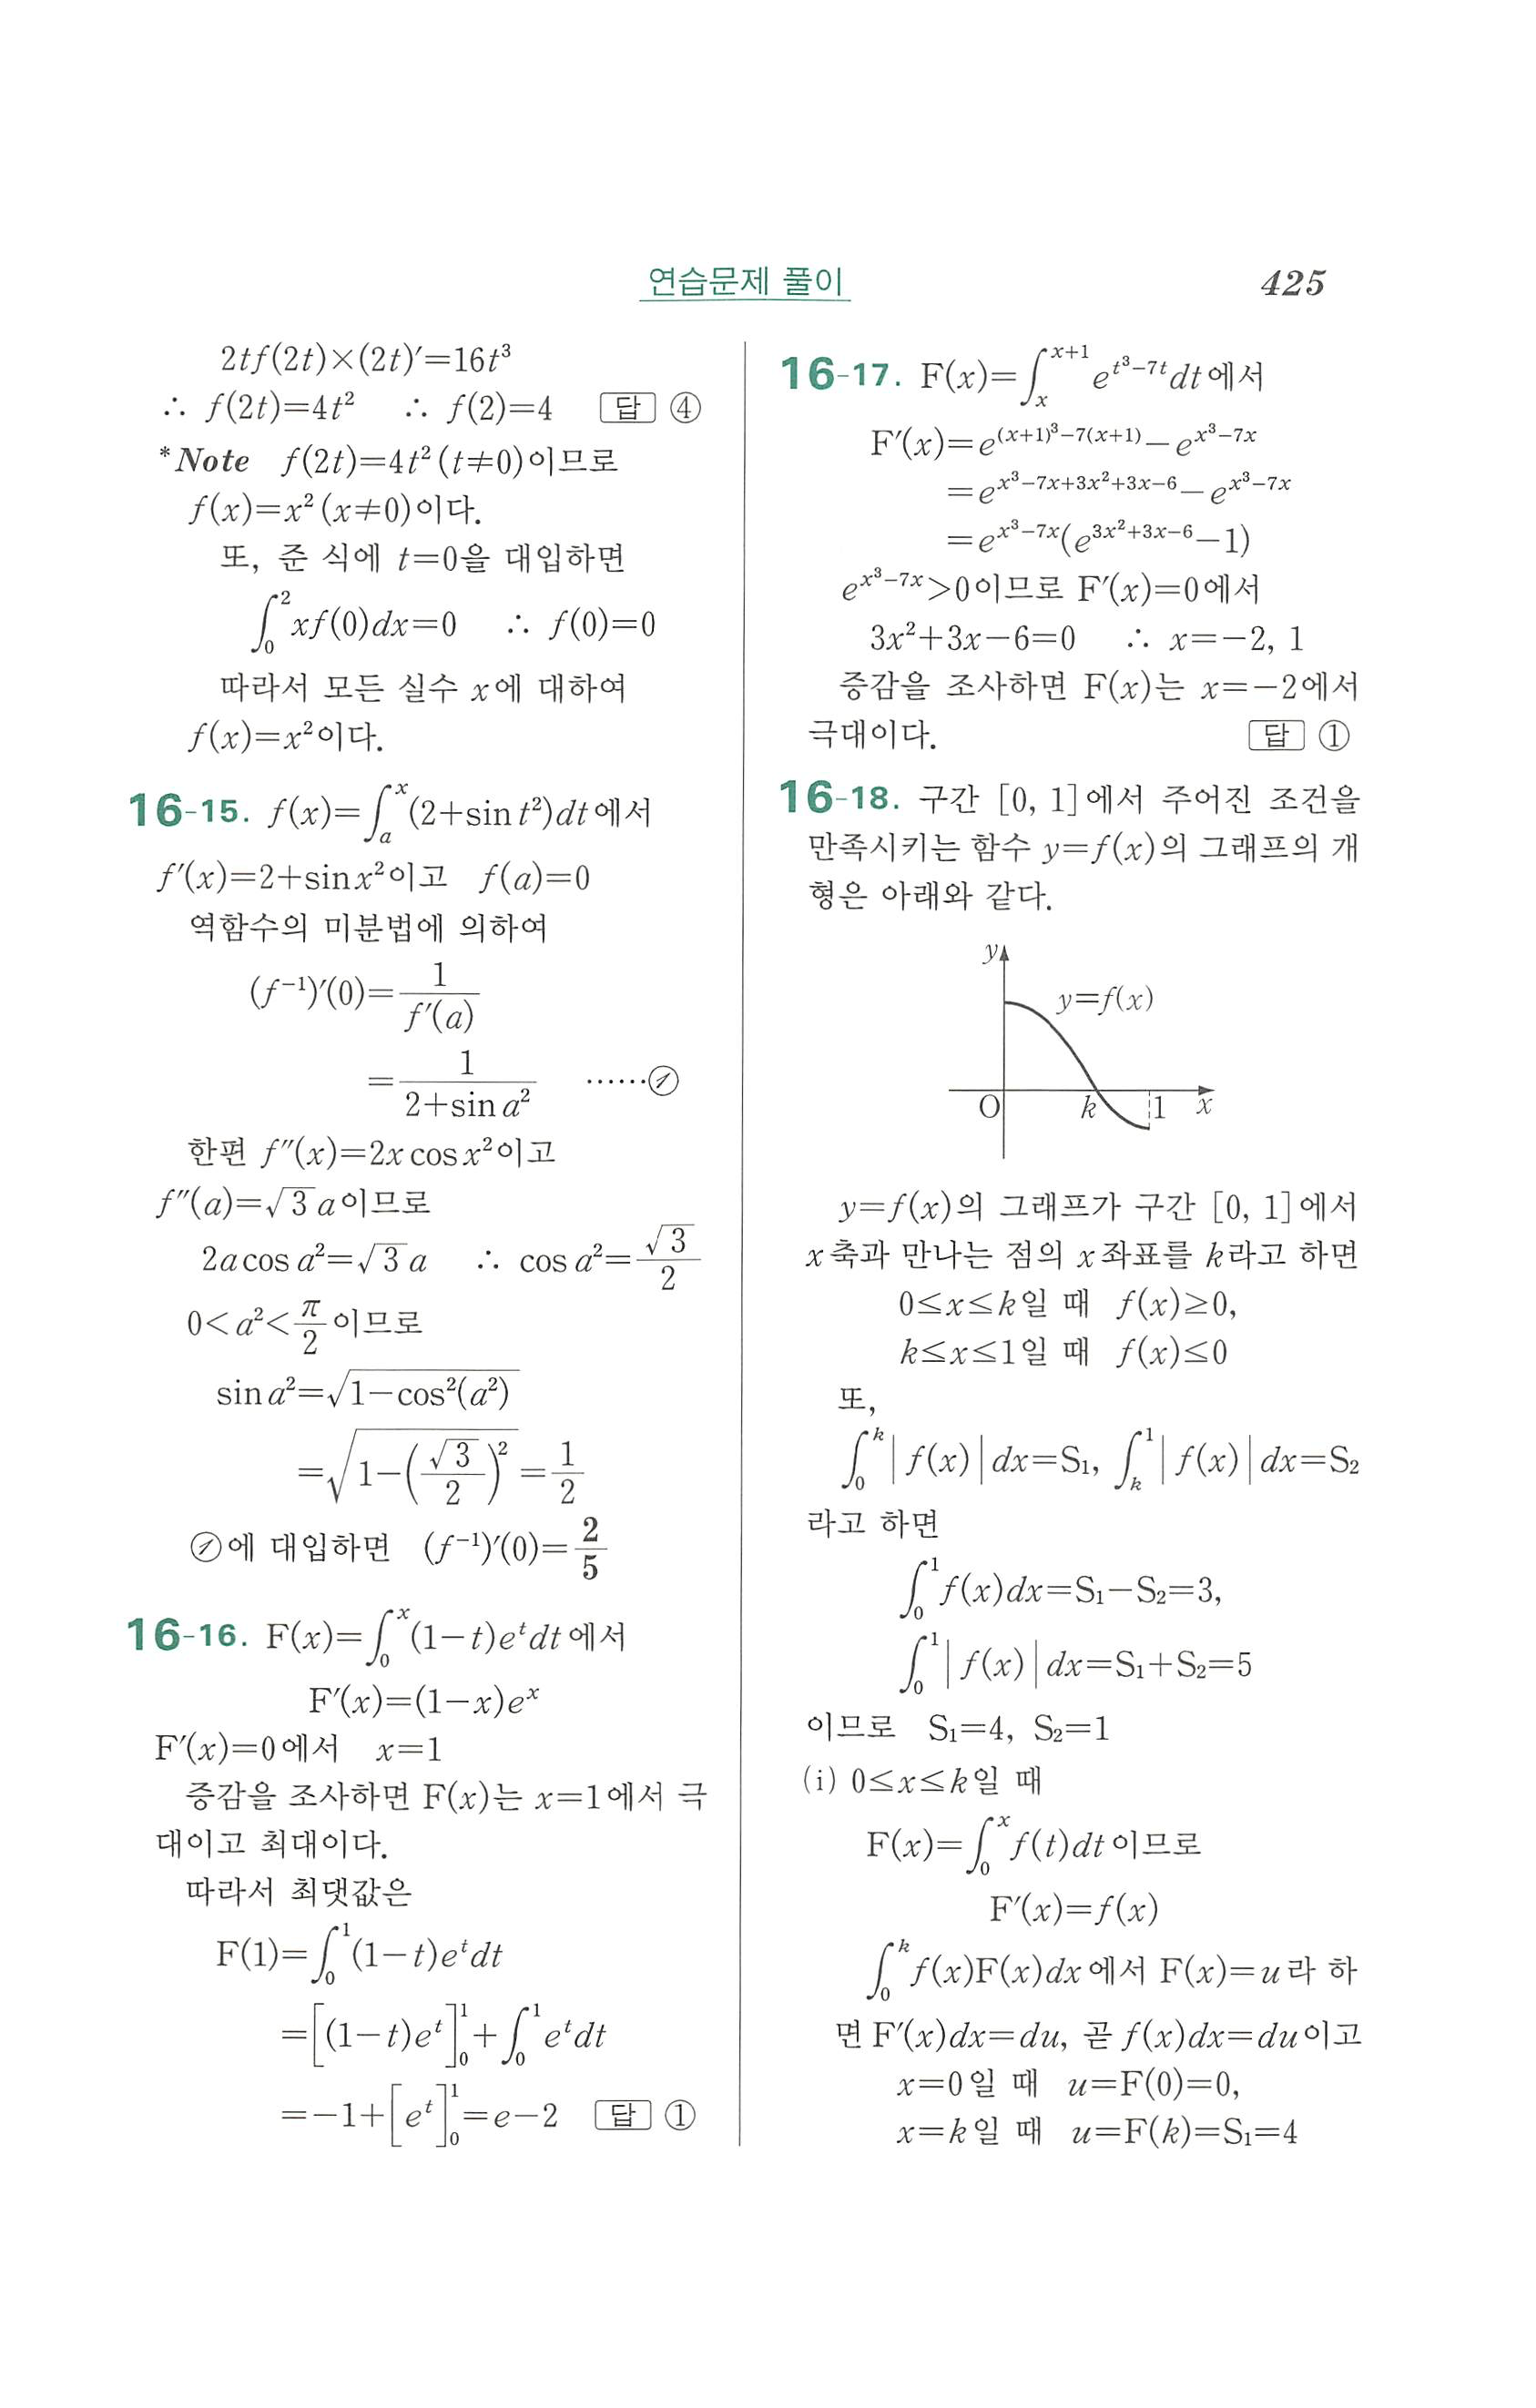 연습문제 풀이 425
2tf(2t)×(2t)′=16t³
∴ f(2t)=4t² ∴ f(2)=4 답 ④
*Note f(2t)=4t² (t≠0)이므로
f(x)=x² (x≠0)이다.
또, 준 식에 t=0을 대입하면
∫₀² xf(0)dx=0 ∴ f(0)=0
따라서 모든 실수 x에 대하여
f(x)=x²이다.
16-15. f(x)=∫ₐˣ(2+sin t²)dt에서
f′(x)=2+sin x²이고 f(a)=0
역함수의 미분법에 의하여
(f⁻¹)′(0)=1/f′(a)
=1/(2+sin a²) ……㉠
한편 f″(x)=2x cos x²이고
f″(a)=√3 a이므로
2a cos a²=√3 a ∴ cos a²=√3/2
0<a²<π/2이므로
sin a²=√(1−cos²(a²))
=√(1−(√3/2)²)=1/2
㉠에 대입하면 (f⁻¹)′(0)=2/5
16-16. F(x)=∫₀ˣ(1−t)eᵗdt에서
F′(x)=(1−x)eˣ
F′(x)=0에서 x=1
증감을 조사하면 F(x)는 x=1에서 극
대이고 최대이다.
따라서 최댓값은
F(1)=∫₀¹(1−t)eᵗdt
=[(1−t)eᵗ]₀¹+∫₀¹eᵗdt
=−1+[eᵗ]₀¹=e−2 답 ①
16-17. F(x)=∫ₓˣ⁺¹ e^(t³−7t)dt에서
F′(x)=e^((x+1)³−7(x+1))−e^(x³−7x)
=e^(x³−7x+3x²+3x−6)−e^(x³−7x)
=e^(x³−7x)(e^(3x²+3x−6)−1)
e^(x³−7x)>0이므로 F′(x)=0에서
3x²+3x−6=0 ∴ x=−2, 1
증감을 조사하면 F(x)는 x=−2에서
극대이다. 답 ①
16-18. 구간 [0, 1]에서 주어진 조건을
만족시키는 함수 y=f(x)의 그래프의 개
형은 아래와 같다.
y
y=f(x)
O k 1 x
y=f(x)의 그래프가 구간 [0, 1]에서
x축과 만나는 점의 x좌표를 k라고 하면
0≤x≤k일 때 f(x)≥0,
k≤x≤1일 때 f(x)≤0
또,
∫₀ᵏ|f(x)|dx=S₁, ∫ₖ¹|f(x)|dx=S₂
라고 하면
∫₀¹f(x)dx=S₁−S₂=3,
∫₀¹|f(x)|dx=S₁+S₂=5
이므로 S₁=4, S₂=1
(i) 0≤x≤k일 때
F(x)=∫₀ˣf(t)dt이므로
F′(x)=f(x)
∫₀ᵏf(x)F(x)dx에서 F(x)=u라 하
면 F′(x)dx=du, 곧 f(x)dx=du이고
x=0일 때 u=F(0)=0,
x=k일 때 u=F(k)=S₁=4